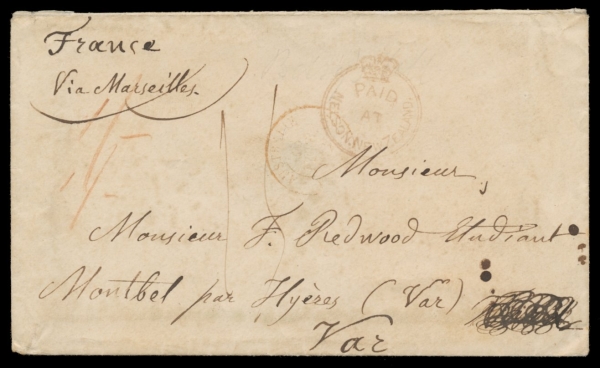 France
Via Marseilles.
1/5
15
PAID
AT
NELSON NEW ZEALAND
Monsieur,
Monsieur F. Redwood Etudiant
Montbel par Hyères (Var)
Var